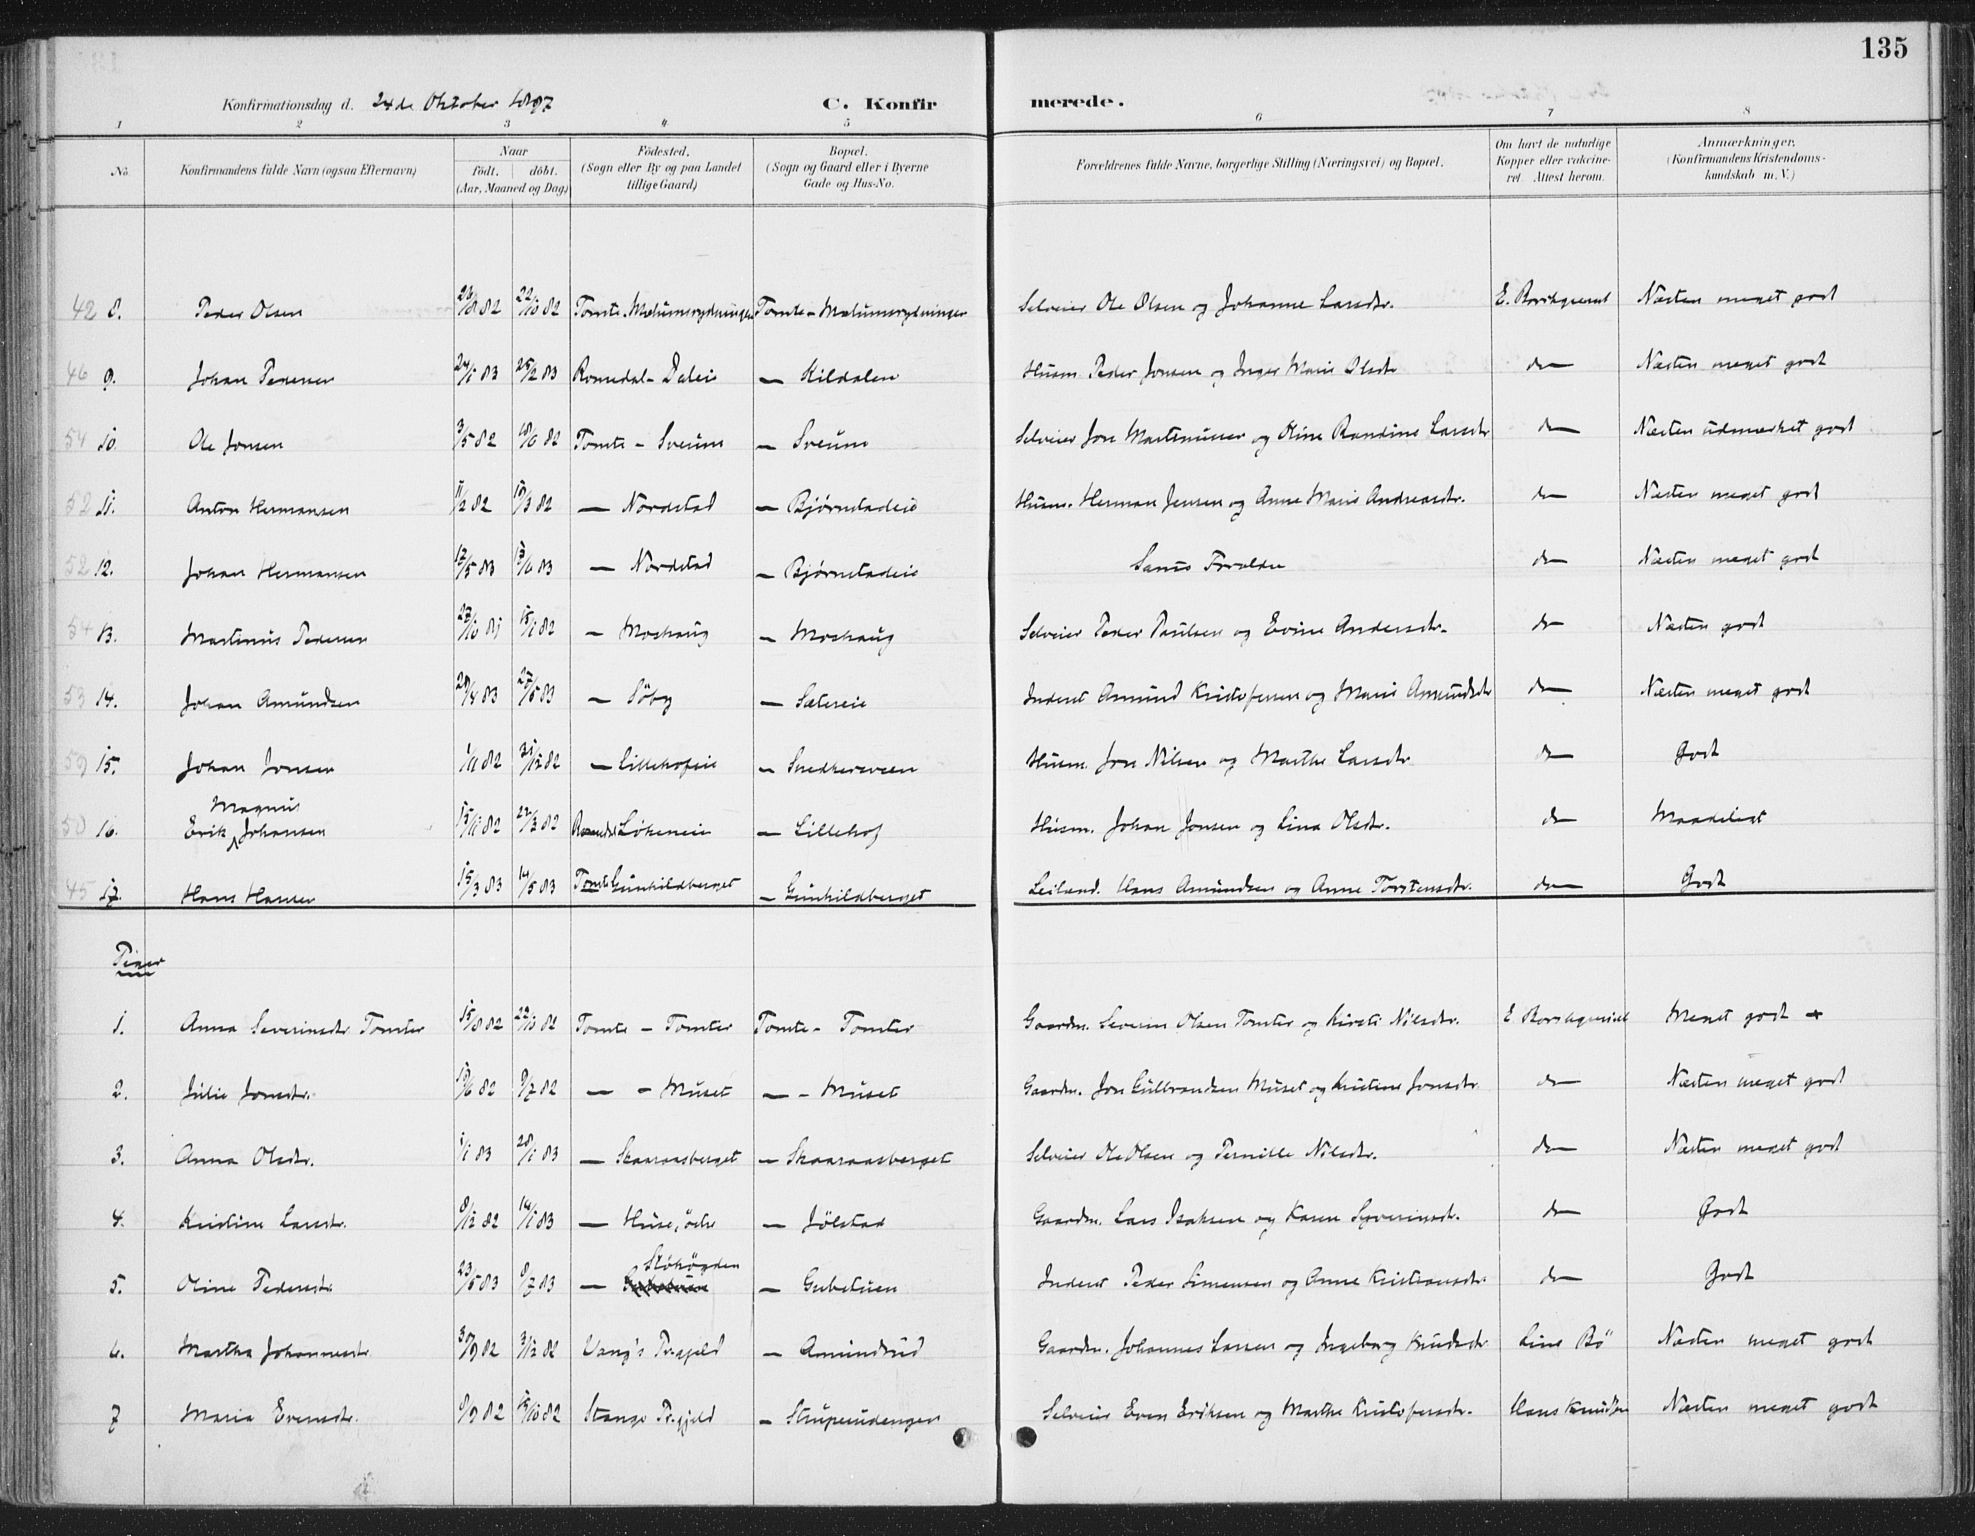 135
Konfirmationsdag d. 24de Oktober 1897 C. Konfirmerede.
1 2 3 4 5 6 7 8
No. Konfirmandens fulde Navn (ogsaa Efternavn) Naar födt. döbt. (Aar, Maaned og Dag) Födested. (Sogn eller By og paa Landet tillige Gaard) Bopæl. (Sogn og Gaard eller i Byerne Gade og Hus-No. Forældrenes fulde Navne, borgerlige Stilling (Næringsvei) og Bopæl. Om havt de naturlige Kopper eller vakcineret. Attest herom. Anmærkninger. (Konfirmandens Kristendomskundskab m. V.)
42 8. Peder Olsen 26/8 82 22/10 82 Tomte - Mælumsrydningen Tomte - Mælumsrydningen Selveier Ole Olsen og Johanne Larsdtr. E. Borchgrevink Næsten meget godt
46 9. Johan Pedersen 24/1 83 25/2 83 Romedal - Daleie — Kildalen Husm. Peder Jonsen og Inger Marie Olsdtr do — Næsten meget godt
54 10. Ole Jonsen 3/5 82 18/6 82 Tomte - Sveum — Sveum Selveier Jon Martinussen og Oline Randine Larsdtr do — Næsten udmærket godt
52 11. Anton Hermansen 11/2 82 19/3 82 — Nordstad — Bjørnstadeie Husm. Herman Jensen og Anne Marie Andreasdtr. do — Næsten meget godt
52 12. Johan Hermansen 12/5 83 17/6 83 — Nordstad — Bjørnstadeie Samme Forældre do — Næsten meget godt
54 13. Martinus Pedersen 27/10 81 15/1 82 — Moshaug — Moshaug Selveier Peder Paulsen og Evine Andersdtr. do — Næsten godt
53 14. Johan Amundsen 29/4 83 27/5 83 — Söby — Sætereie Inderst Amund Kristofersen og Marie Amundsdtr do — Næsten meget godt
59 15. Johan Jonsen 1/11 82 31/12 82 — Lillehofeie — Snedkersveen Husm. Jon Nilsen og Marthe Larsdtr. do — Godt
Magnus
50 16. Erik Johansen 22/3 82 Romedal Løkeneie — Lillehof Husm. Johan Jonsen og Lina Olsdtr. do — Maadeligt
45 17. Hans Hansen 15/3 83 14/5 83 Tomte Gunhildberget — Gunhildberget Leilænd. Hans Amundsen og Anne Torstensdtr. do — Godt
Piger
1. Anna Severinsdtr Tomter 15/8 82 22/10 82 Tomte - Tomter Tomte - Tomter Gaardm. Severin Olsen Tomter og Kirsti Nilsdtr. E. Borchgrevink Meget godt +
2. Julie Jonsdtr. 9/7 82 — - Muset — - Muset Gaardm. Jon Gulbrandsen Muset og Kristine Jonsdtr do — Næsten meget godt
3. Anna Olsdtr. 1/1 83 28/1 83 — Skaaraasberget — Skaaraasberget Selveier Ole Olsen og Pernille Nilsdtr. do — Næsten meget godt
4. Kristine Larsdtr. 8/12 82 14/1 83 — Huse, östre — Jölstad Gaardm. Lars Isaksen og Karen Syverinsdtr. do — Godt
5. Oline Pedersdtr 23/5 83 8/7 83 — Gubetuen — Gubetuen Inderst Peder Simensen og Anne Kristiansdtr. do — Godt
6. Martha Johannesdtr 30/9 82 3/12 82 Vang's Pr.gjeld — Amundrud Gaardm. Johannes Larsen og Ingeborg Knudsdtr Line Bö Næsten meget godt
7 Maria Evensdtr. 9/9 82 15/10 82 Stange Pr.gjeld — Struperudengen Selveier Even Eriksen og Marthe Kristofersdtr. Hans Knudsen Næsten meget godt